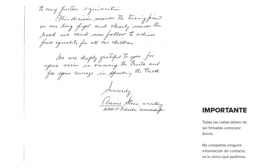 to any further
This decision marks the turning point
in our long fight and clearly means the
road we must now follow to achieve
full equality for all our children.
We are deeply grateful to you for
your vision in knowing the truth and
for your courage in speaking the truth.
Sincerely,
Annie
IMPORTANTE
Todas las cartas deben de
ser firmadas como/por
Annie.
No compartas ninguna
información de contacto,
es lo único que pedimos.